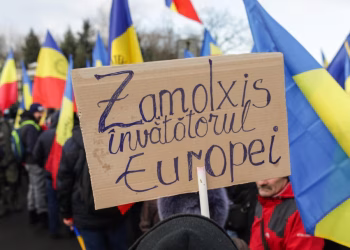 Zamolxis
învățătorul
Europei